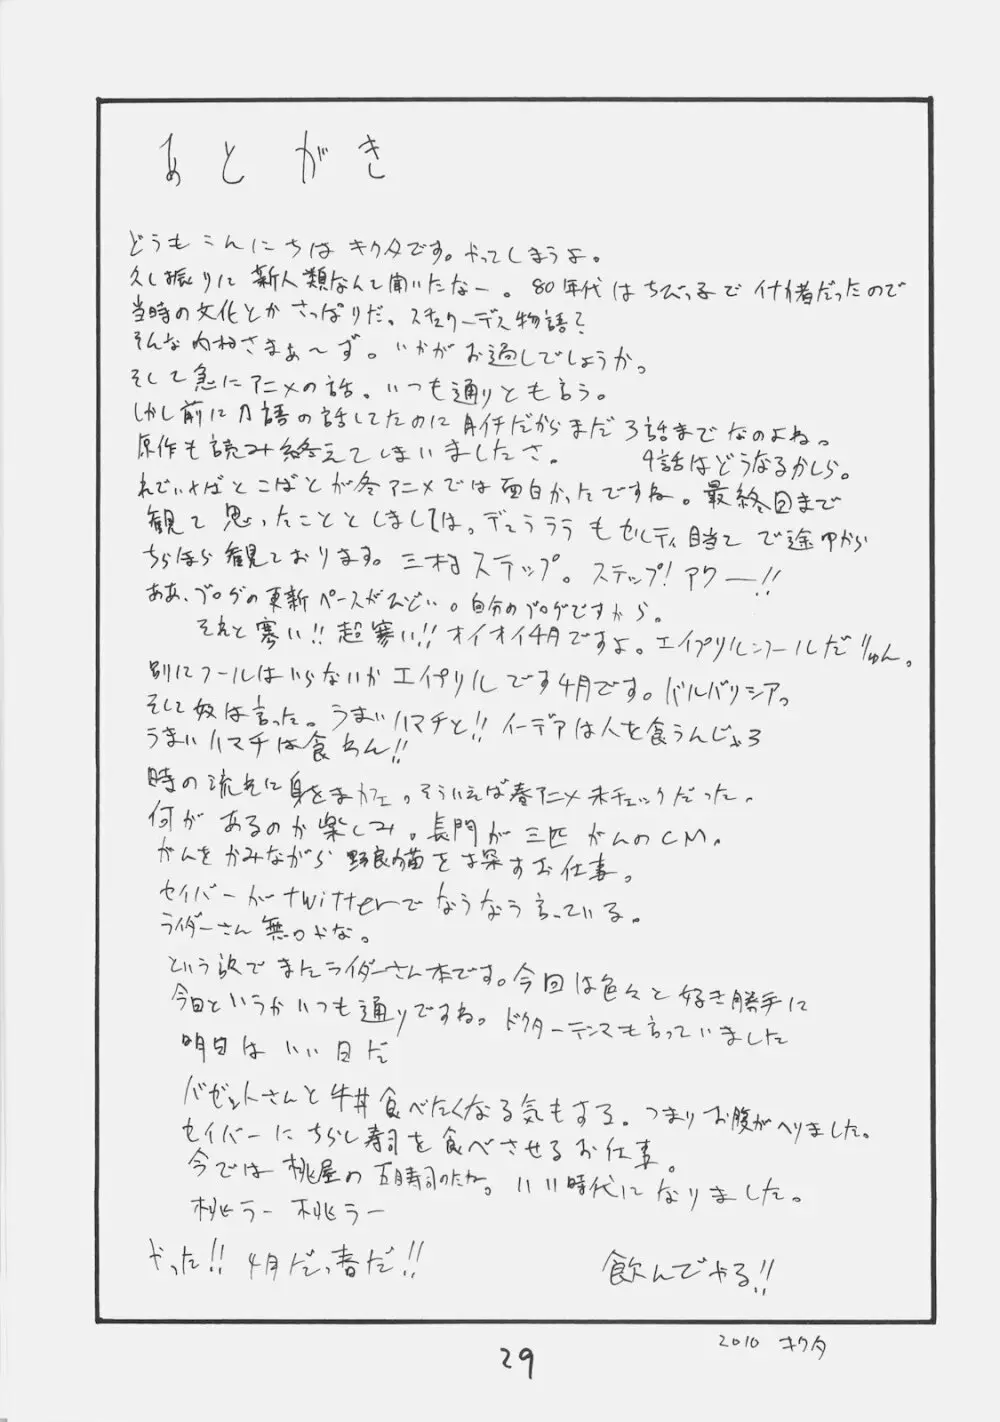 あとがき
どうもこんにちはキクタです。やってしまうよ。
久し振りに新人類なんて聞いたなー。80年代はちびっ子で
当時の文化とかさっぱりだ。スチュワーデス物語？
そんな内村さまぁ～ず。いかがお過しでしょうか。
そして急にアニメの話。いつも通りとも言う。
しかし前に刀語の話してたのに月イチだからまだ3話までなのよね。
原作も読み終えてしまいましたさ。 4話はどうなるかしら。
れでぃ×ばとこばとが冬アニメでは面白かったですね。最終回まで
観て思ったこととしましては。デュラララもセルティ目当てで途中から
ちらほら観ております。三村ステップ。ステップ！アウー!!
ああ、ブログの更新ペースがひどい。自分のブログですから。
それと寒い!!超寒い!!オイオイ4月ですよ。エイプリルフールだ
別にフールはいらないかエイプリルです4月です。バルバリシアっ
そして奴は言った。うまいハマチと!!イーデアは人を食うんじゃろ
うまいハマチは食わん!!
時の流れに身をまカフェ。そういえば春アニメ未チェックだった。
何があるのか楽しみ。長門が三匹がんのCM。
がんをかみながら野良猫を探すお仕事。
セイバーがtwitterでなうなう言っている。
ライダーさん無口やな。
という訳でまたライダーさん本です。今回は色々と好き勝手に
今回というかいつも通りですね。ドクターテンマも言っていました
明日はいい日だ
バゼットさんと牛丼食べたくなる気もする。つまりお腹がへりました。
セイバーにちらし寿司を食べさせるお仕事。
今では桃屋の五目寿司のたね。いい時代になりました。
桃ラー 桃ラー
やった!!4月だっ春だ!! 飲んでやる!!
2010 キクタ
29